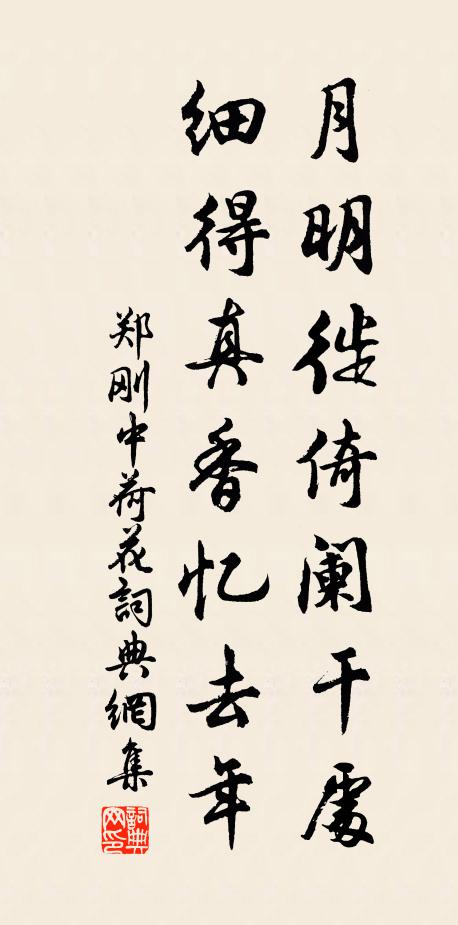 月明徙倚阑干處
细得真香忆去年
郑刚中荷花詞典網集
詞典网印